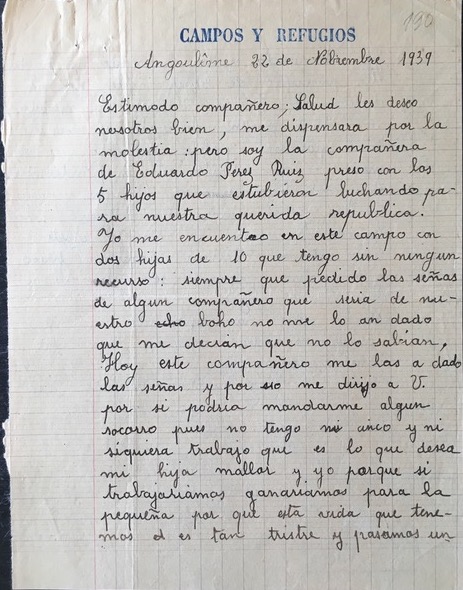 190
CAMPOS Y REFUGIOS
Angoulême 22 de Nobiembre 1939
Estimodo compañero; Salud les deseo
nosotros bien, me dispensara por la
molestia: pero soy la compañera
de Eduardo Perez Ruiz preso con los
5 hijos que estubieron luchando pa-
ra nuestra querida republica.
Yo me encuentro en este campo con
dos hijas de 10 que tengo sin ningun
recurso: siempre que pedido las señas
de algun compañero que seria de nu-
estro boho no me lo an dado
que me decian que no lo sabian.
Hoy este compañero me las a dado
las señas y por me dirijo a V.
por si podria mandarme algun
socorro pues no tengo ni unco y ni
siquiera trabajo que es lo que desea
mi hija mallor y yo porque si
trabajariamos ganariamos para la
pequeña por que esta vida que tene-
mos es tan tristre y pasamos un